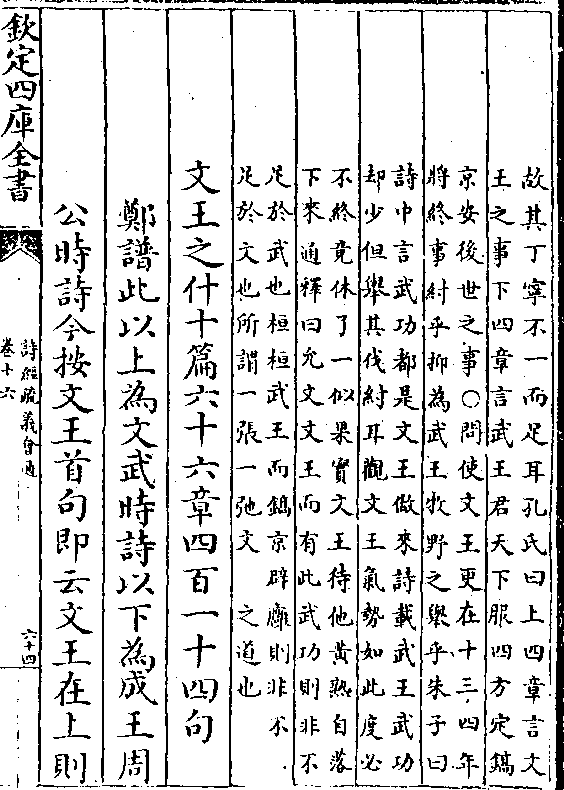 故其丁寧不一而足耳孔氏曰上四章言文
王之事下四章言武王君天下服四方定鎬
京安後世之事○問使文王更在十三四年
將終事紂乎抑為武王牧野之舉乎朱子曰
詩中言武功都是文王做來詩載武王武功
却少但舉其伐紂耳觀文王氣勢如此度必
不終竟休了一似果實文王待他黄熟自落
下來通釋曰允文文王而有此武功則非不
足於武也桓桓武王而鎬京辟廱則非不
足於文也所謂一張一弛文之道也
文王之什十篇六十六章四百一十四句
鄭譜此以上為文武時詩以下為成王周
公時詩今按文王首句即云文王在上則
欽定四庫全書
詩經疏義會通
卷十六
六十四